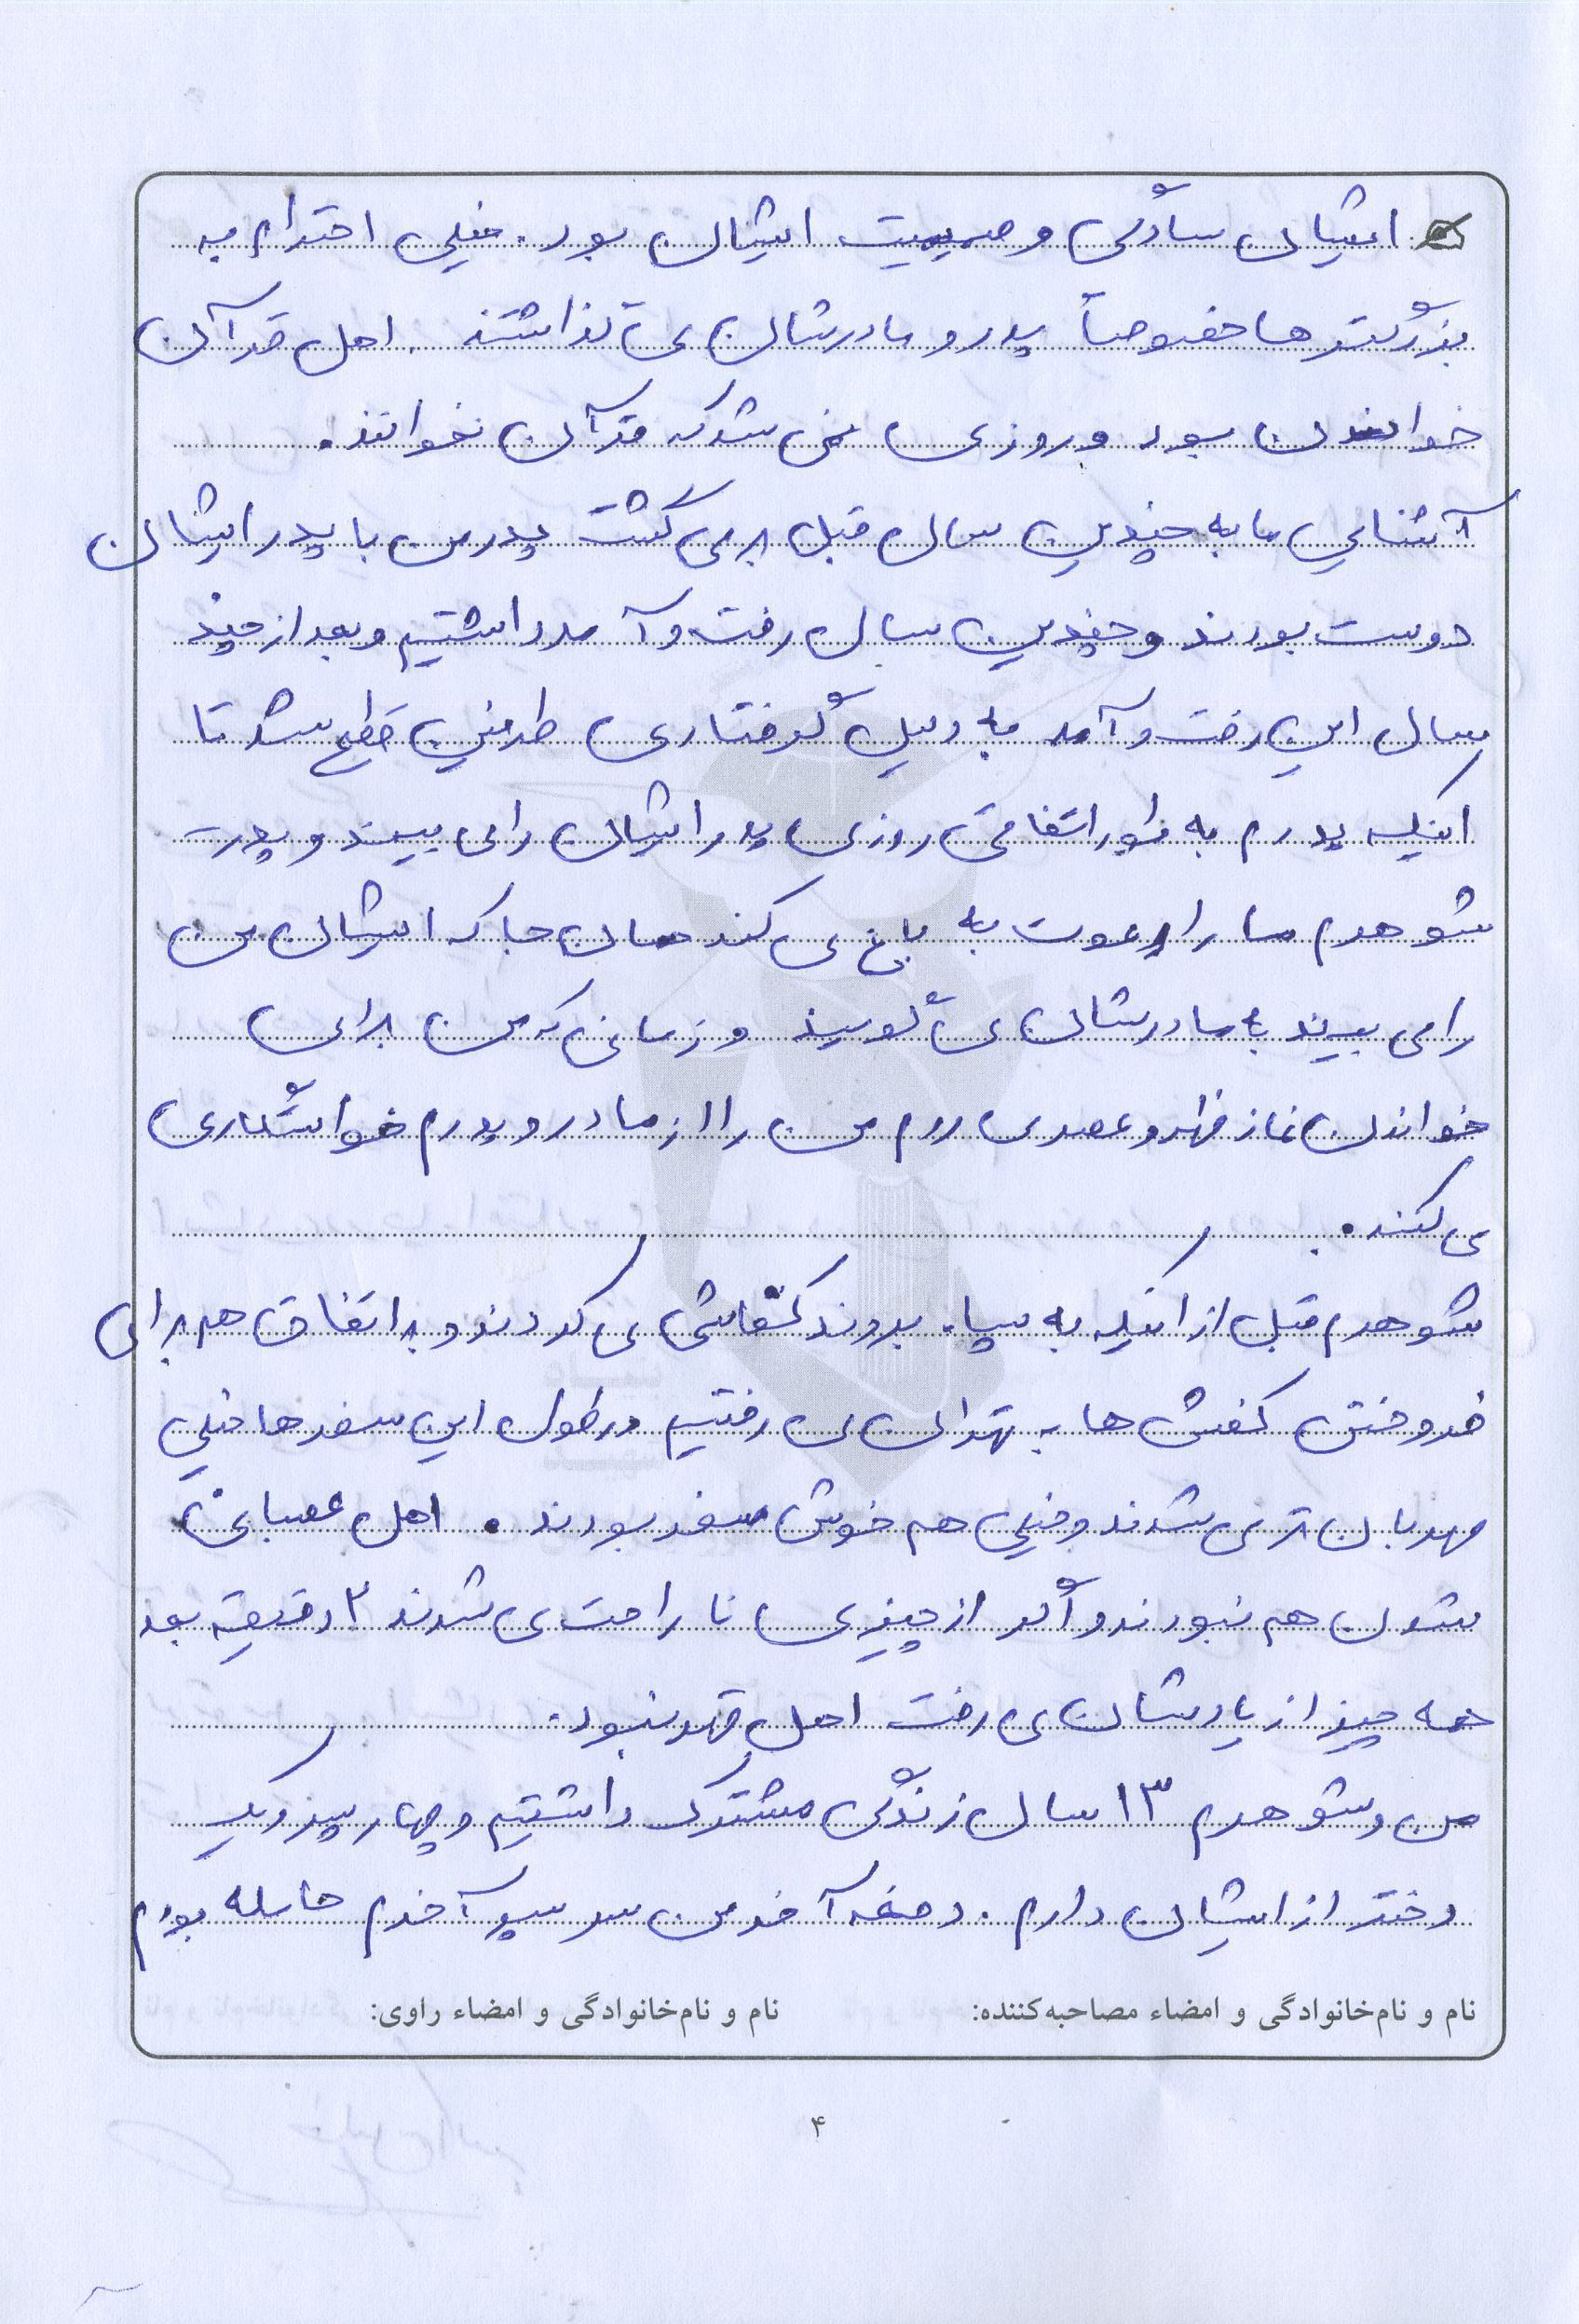 ایشان سادگی و صمیمیت ایشان بود. خیلی احترام به
بزرگترها خصوصاً پدر و مادرشان می گذاشتند. اهل قرآن
خواندن بود و روزی نمی شد که قرآن نخوانند.
آشنایی ما به چندین سال قبل برمی گشت پدر من با پدر ایشان
دوست بودند و چندین سال رفت و آمد داشتیم و بعد از چند
سال این رفت و آمد به دلیل گرفتاری طرفین قطع شد تا
اینکه پدرم به طور اتفاقی روزی پدر ایشان را می بیند و پدر
شوهرم ما را دعوت به باغ می کند همان جا که ایشان من
را می بیند به مادرشان می گویند و زمانی که من برای
خواندن نماز ظهر و عصر می روم من را از مادر و پدرم خواستگاری
می کنند.
شوهرم قبل از اینکه به سپاه بروند کفاشی می کردند و به اتفاق هم برای
فروختن کفش ها به تهران می رفتیم در طول این سفرها خیلی
مهربان تر می شدند و خیلی هم خوش سفر بودند. اهل عصبانی
شدن هم نبودند و اگر از چیزی ناراحت می شدند ۲ دقیقه بعد
همه چیز از یادشان می رفت اهل قهر نبود.
من و شوهرم ۱۳ سال زندگی مشترک داشتیم و چهار پسر و یک
دختر از ایشان دارم. دفعه آخر من سر پسر آخرم حامله بودم
نام و نام‌خانوادگی و امضاء مصاحبه‌کننده: نام و نام‌خانوادگی و امضاء راوی:
۴